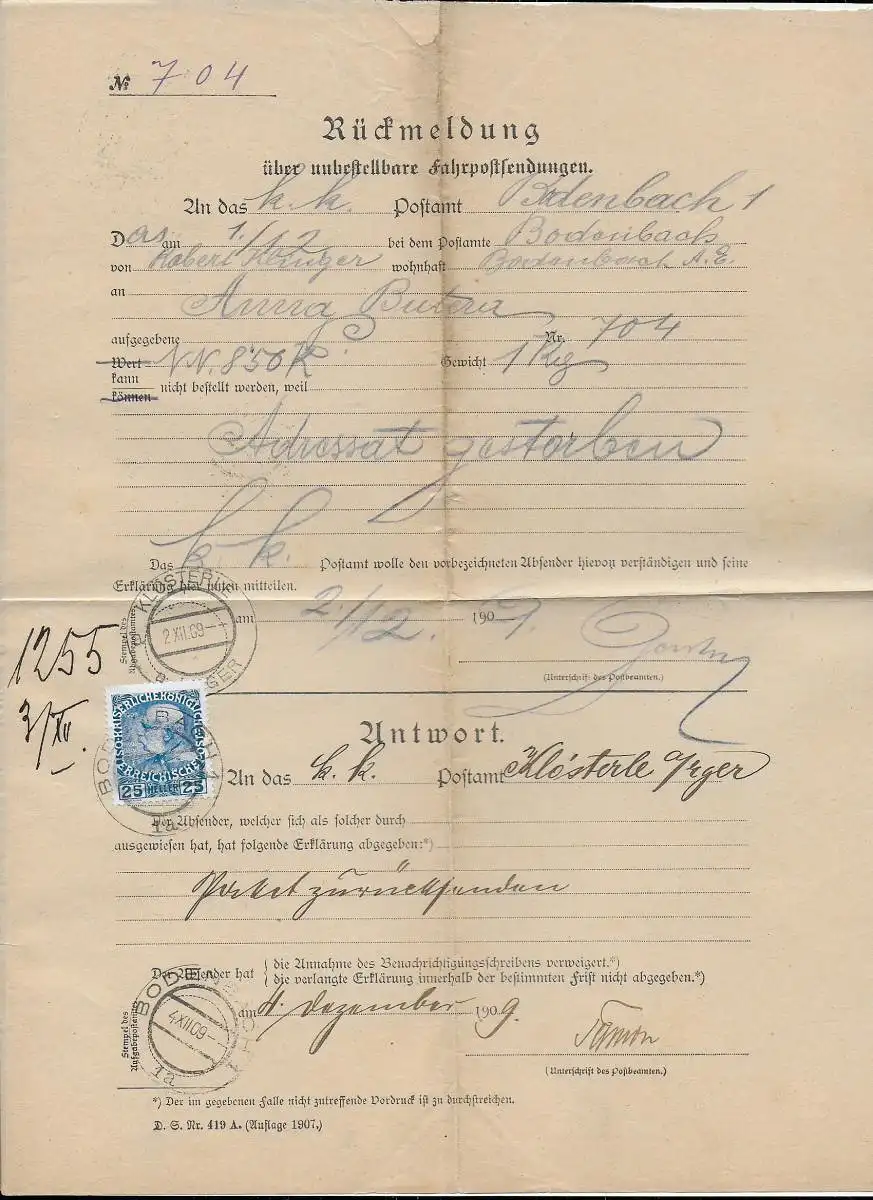 № 704
Rückmeldung
über unbestellbare Fahrpostsendungen.
An das k. k. Postamt Bodenbach 1
Das am 1./12 bei dem Postamte Bodenbach
von Robert wohnhaft Bodenbach A. E.
an Anna
aufgegebene Nr. 704
Wert NN. 8·50 K Gewicht 1 Kg
kann
können nicht bestellt werden, weil
Adressat gestorben
Das k. k. Postamt wolle den vorbezeichneten Absender hievon verständigen und seine
Erklärung hier unten mitteilen.
KLÖSTERLE
2 XII. 09
EGER
Stempel des
Abgabepostamtes
am 2./12. 1909.
(Unterschrift des Postbeamten.)
1255
3/XII.
KAISERLICHEKÖNIGLICHE
ÖSTERREICHISCHE
25 HELLER 25
BODENBACH 1
1a
Antwort.
An das k. k. Postamt Klösterle a/Eger
Der Absender, welcher sich als solcher durch
ausgewiesen hat, hat folgende Erklärung abgegeben:*)
Paket zurücksenden
Der Absender hat { die Annahme des Benachrichtigungsschreibens verweigert.*)
{ die verlangte Erklärung innerhalb der bestimmten Frist nicht abgegeben.*)
Stempel des
Aufgabepostamtes
BODENBACH 1
4 XII 09
1a
am 4. Dezember 1909.
(Unterschrift des Postbeamten.)
*) Der im gegebenen Falle nicht zutreffende Vordruck ist zu durchstreichen.
D. S. Nr. 419 A. (Auflage 1907.)